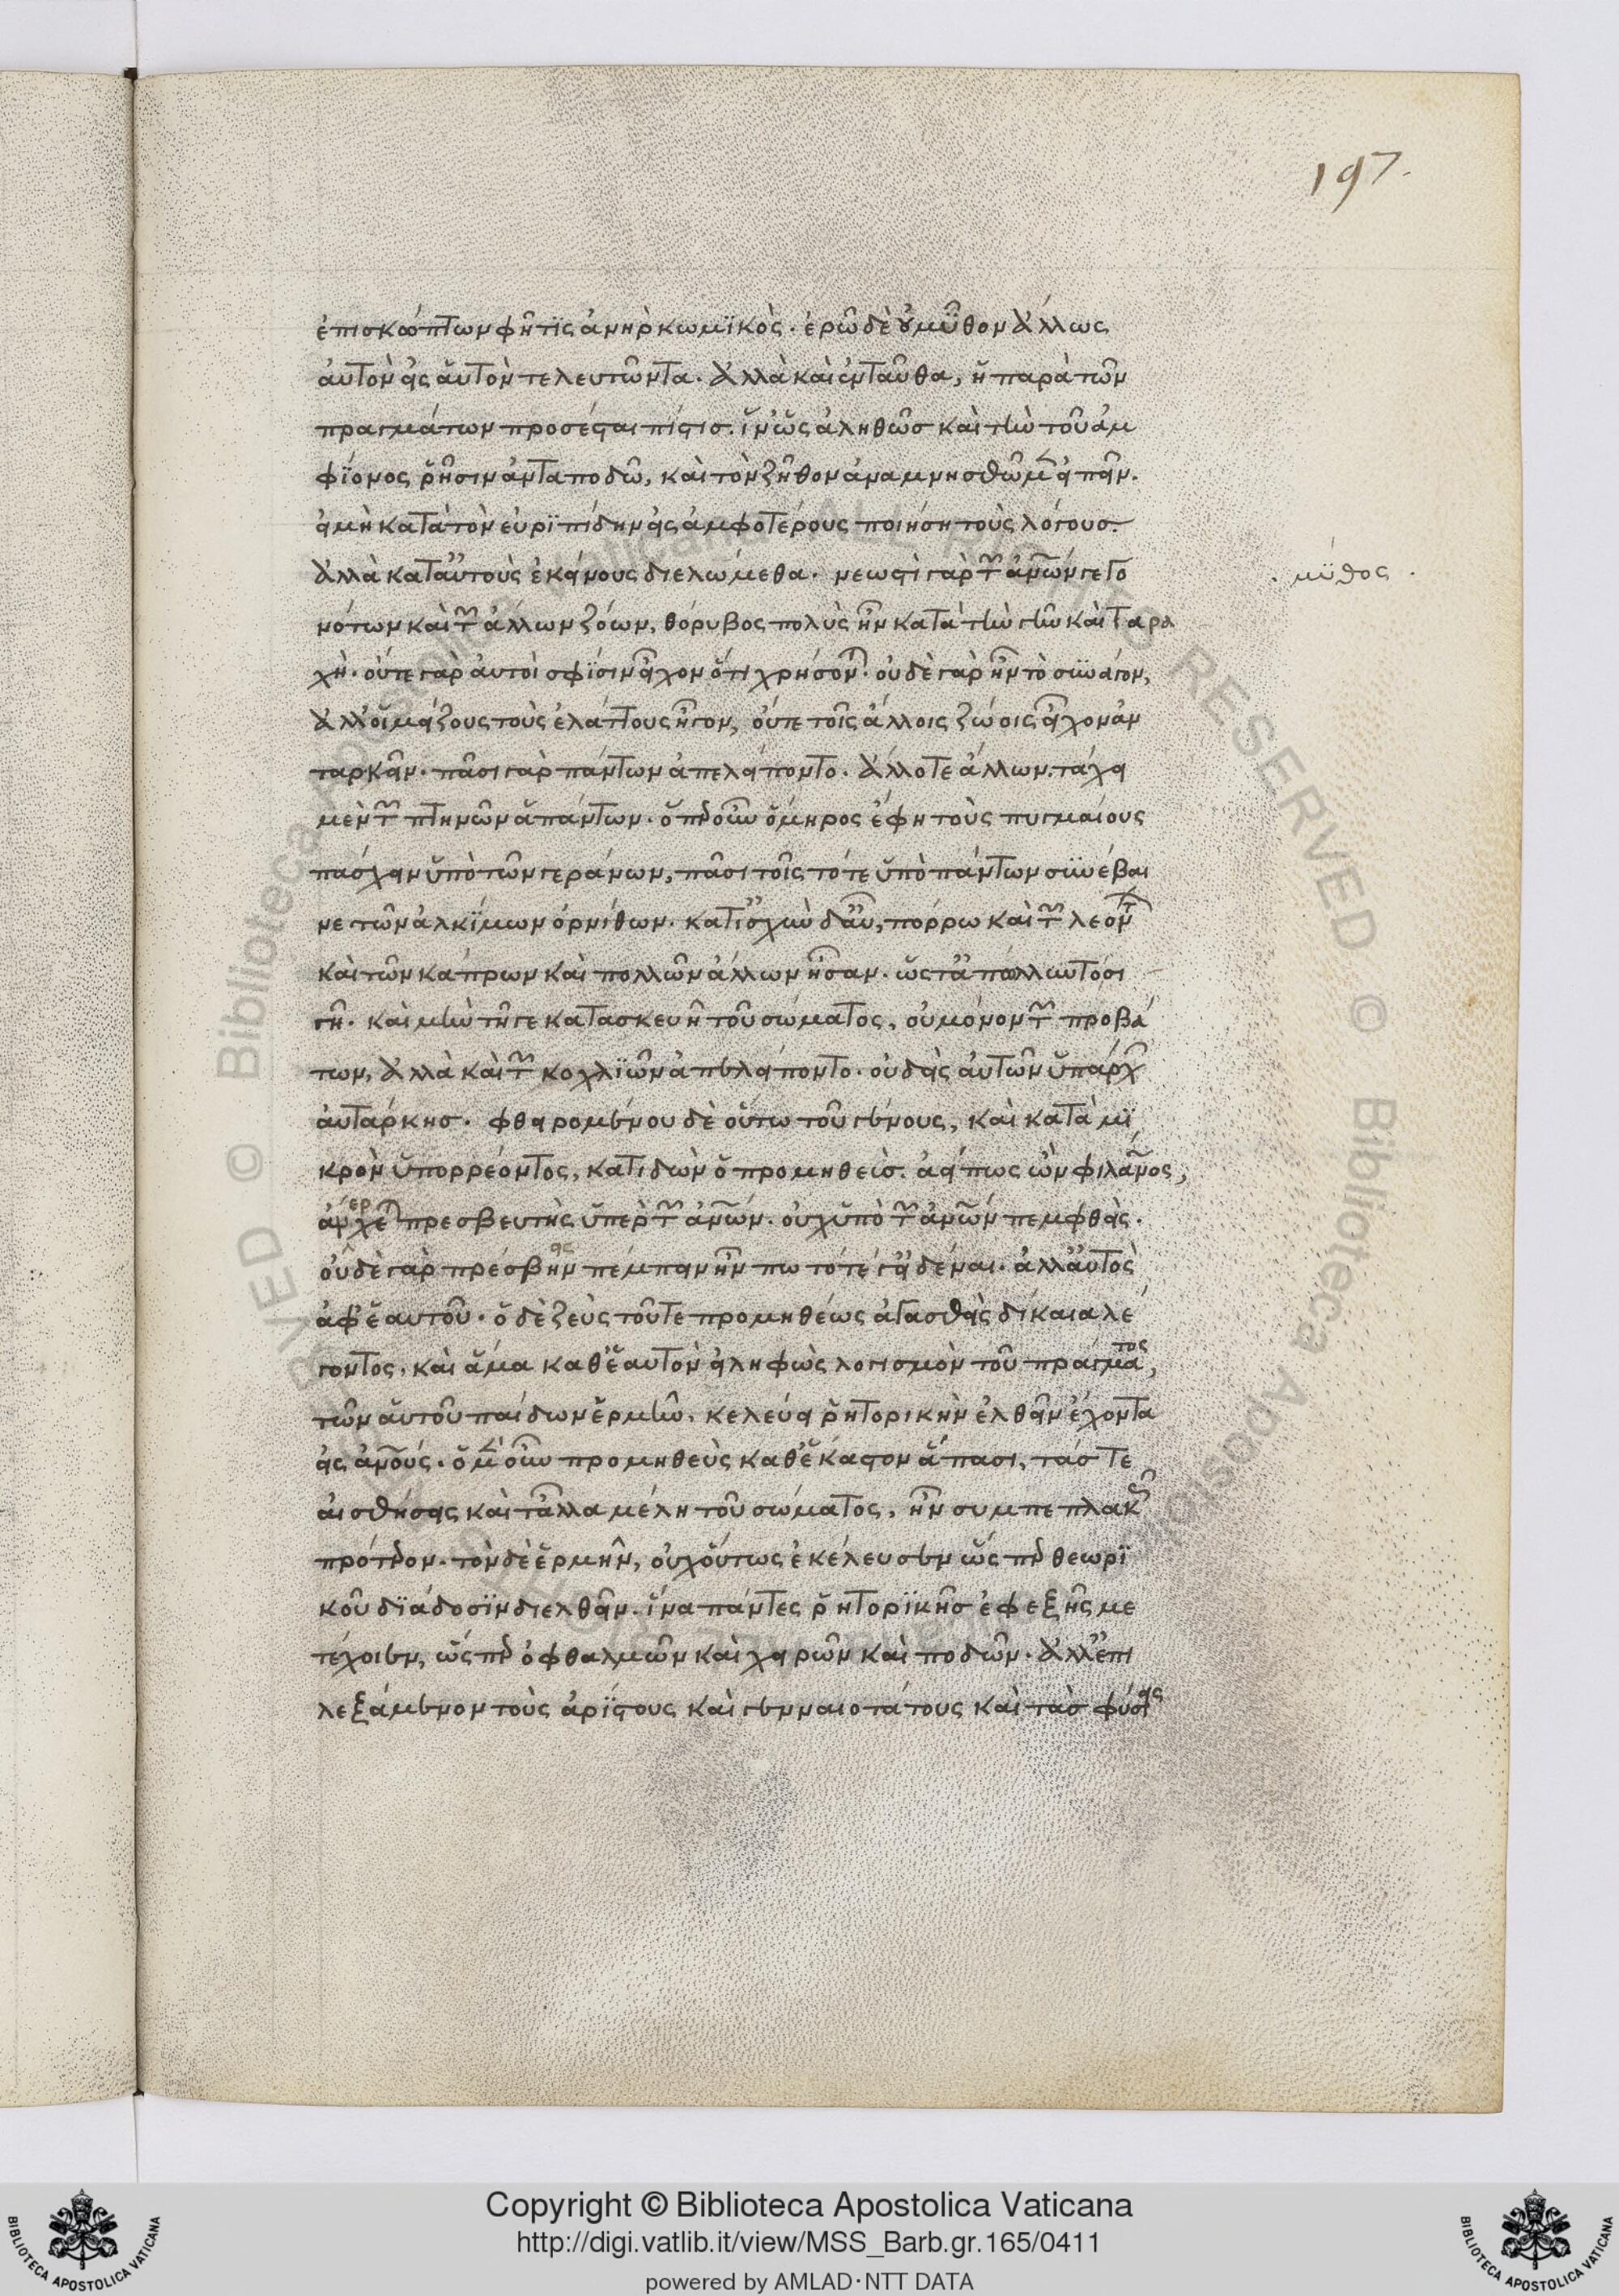 197.
ἐπισκώπτων φῆ τῒς ἀνὴρ κωμϊκὸς. ἐρῶ δὲ οὐ μῦθον ἄλλως
ἀυτὸν εἰς ἁυτὸν τελευτῶντα. ἀλλὰ καὶ ἐνταῦθα, ἡ παρὰ τῶν
πραγμάτων προσέσται πίστισ. ἵν ὡς ἀληθῶσ καὶ τὴν τοῦ ἀμ
φΐονος ῥῆσιν ἀνταποδῶ, καὶ τὸν ζῆθον ἀναμνησθῶμεν εἰπεῖν.
εἰ μὴ κατὰ τὸν εὐρϊπίδην εἰς ἀμφοτέρους ποιήση τοὺς λόγουσ.
ἀλλὰ κατ αὐτοὺς ἐκείνους διελώμεθα. νεωστὶ γὰρ τῶν ἀνων γεγο
νότων καὶ τῶν ἄλλων ζώων, θόρυβος πολὺς ἦν κατὰ τὴν γῆν καὶ ταρα
χὴ. οὔτε γὰρ ἀυτοὶ σφΐσιν εἶχον ὅτι χρήσον. οὐδὲ γὰρ ἦν τὸ συνάγον,
ἀλλ οἱ μείζους τοὺς ἐλάττους ἦγον, οὔτε τοῖς ἄλλοις ζώοις εἶχον ἀν
ταρκεῖν. πᾶσι γὰρ πάντων ἀπελείποντο. ἄλλοτε ἄλλων. τάχα
μὲν τῶν πτηνῶν ἁπάντων. ὅπερ οὖν ὅμηρος ἔφη τοὺς πυγμαίους
πάσχειν ὑπὸ τῶν γεράνων, πᾶσι τοῖς τότε ὑπὸ πάντων συνέβαι
νε τῶν ἀλκΐμων ὀρνίθων. κατ ἰσχὺν δ αὖ, πόρρω καὶ τῶν λεόντων
καὶ τῶν κάπρων καὶ πολλῶν ἄλλων ἦσαν. ὥστ ἀπόλλυντο σι
γῆ. καὶ μὴν τῆ γε κατασκευῆ τοῦ σώματος, οὐ μόνον τῶν προβά
των, ἀλλὰ καὶ τῶν κοχλϊῶν ἀπελείποντο. οὐδεὶς ἀυτῶν ὑπάρχων
ἀυτάρκησ. φθειρομένου δὲ οὕτω τοῦ γένους, καὶ κατὰ μϊ
κρὸν ὑπορρέοντος, κατιδὼν ὁ προμηθεὺσ. ἀεί πως ὢν φιλανος,
ἀνέρχεται πρεσβευτὴς ὑπὲρ τῶν ἀνων. οὐχ ὑπὸ τῶν ἀνων πεμφθεὶς.
οὐδὲ γὰρ πρέσβεις πέμπειν ἦν πω τότέ γ εἰδέναι. ἀλλ αὐτὸς
ἀφ ἑαυτοῦ. ὁ δὲ ζεὺς τοῦ τε προμηθέως ἀγασθεὶς δίκαια λέ
γοντος. καὶ ἅμα καθ ἑαυτὸν εἰληφὼς λογισμὸν τοῦ πράγματος,
τῶν ἁυτοῦ παίδων ἑρμῆν. κελεύει ῥητορικὴν ἐλθεῖν ἔχοντα
εἰς ἀνους. ὁ μὲν οὖν προμηθεὺς καθ ἕκαστον ἅπασι, τάσ τε
ἀισθήσεις καὶ τἆλλα μέλη τοῦ σώματος, ἦν συμπεπλακὼς
πρότερον. τὸν δὲ ἑρμῆν, οὐχ οὕτως ἐκέλευσεν ὥσπερ θεωρϊ
κοῦ διάδοσϊν διελθεῖν. ἵνα πάντες ῥητορϊκῆσ ἐφεξῆς με
τέχοιεν, ὥσπερ ὀφθαλμῶν καὶ χειρῶν καὶ ποδῶν. ἀλλ ἐπι
λεξάμενον τοὺς ἀρΐστους καὶ γενναιοτάτους καὶ τὰσ φύσεις
. μῦθος .
Copyright © Biblioteca Apostolica Vaticana
http://digi.vatlib.it/view/MSS_Barb.gr.165/0411
powered by AMLAD·NTT DATA